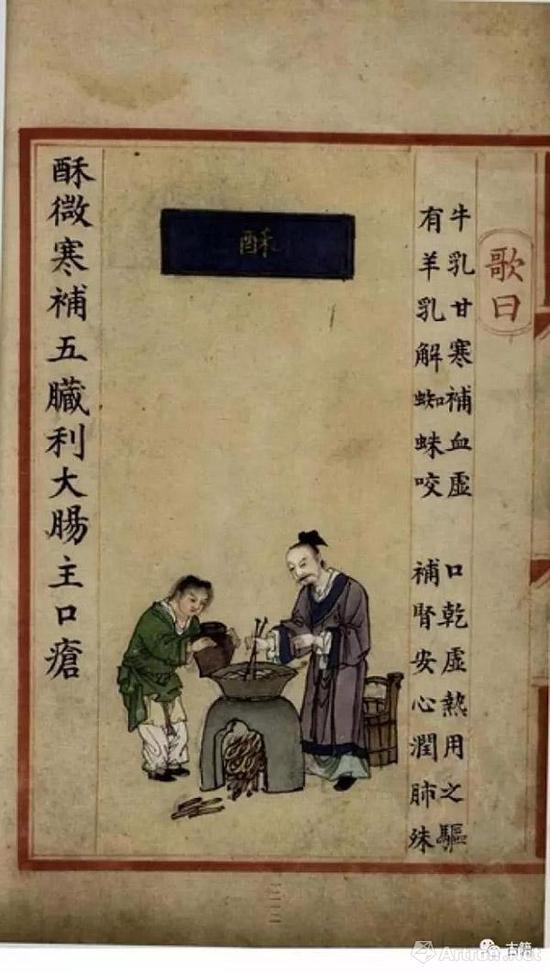 歌曰
牛乳甘寒補血虛 口乾虛熱用之驅
有羊乳解蜘蛛咬 補腎安心潤肺殊
酥
酥微寒補五臟利大腸主口瘡
古籍
Artron.Net